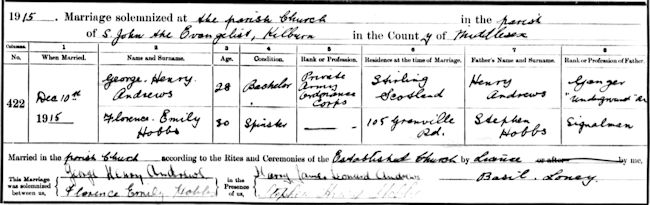 1915. Marriage solemnized at the parish Church in the parish
of S. John the Evangelist, Kilburn in the County of Middlesex
Columns. 1 2 3 4 5 6 7 8
When Married. Name and Surname. Age. Condition. Rank or Profession. Residence at the time of Marriage. Father's Name and Surname. Rank or Profession of Father.
422
Dec 10th 1915
George Henry Andrews 28 Bachelor Private Army Ordnance Corps Stirling Scotland Henry Andrews Ganger "Underground"
Florence Emily Hobbs 30 Spinster — 105 Granville Rd. Stephen Hobbs Signalman
Married in the parish Church according to the Rites and Ceremonies of the Established Church by Licence or after by me,
This Marriage was solemnized between us, George Henry Andrews Florence Emily Hobbs in the Presence of us, Harry James Leonard Andrews Stephen Hobbs Basil Loney